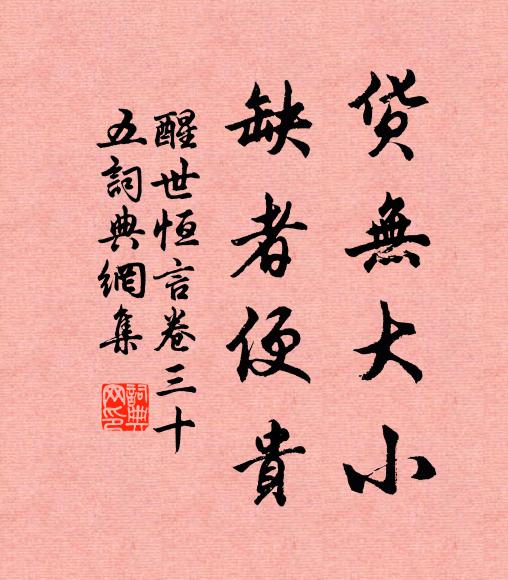 货無大小
缺者便貴
醒世恒言卷三十
五詞典網集
詞典
网印